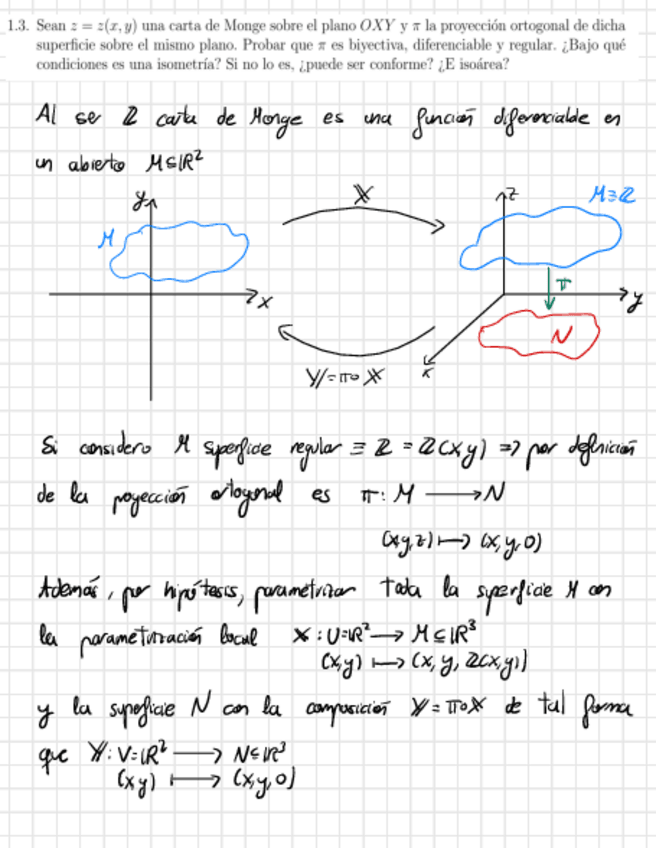 1.3. Sean z = z(x, y) una carta de Monge sobre el plano OXY y π la proyección ortogonal de dicha
superficie sobre el mismo plano. Probar que π es biyectiva, diferenciable y regular. ¿Bajo qué
condiciones es una isometría? Si no lo es, ¿puede ser conforme? ¿E isoárea?
Al se z carta de Monge es una función diferencialde en
un abierto M⊆ℝ²
y
M
x
𝕏
z
M≡z
π
y
N
x
𝕐=π∘𝕏
Si considero M superficie regular ≡ z = z(x,y) => por definición
de la poyección ortogonal es π: M ⟶ N
(x,y,z) ⟼ (x,y,0)
Además, por hipótesis, parametrizar toda la superficie M con
la parametrización local 𝕏: U=ℝ² ⟶ M⊆ℝ³
(x,y) ⟼ (x, y, z(x,y))
y la superficie N con la composición 𝕐=π∘𝕏 de tal forma
que 𝕐: V=ℝ² ⟶ N⊆ℝ³
(x y) ⟼ (x,y,0)